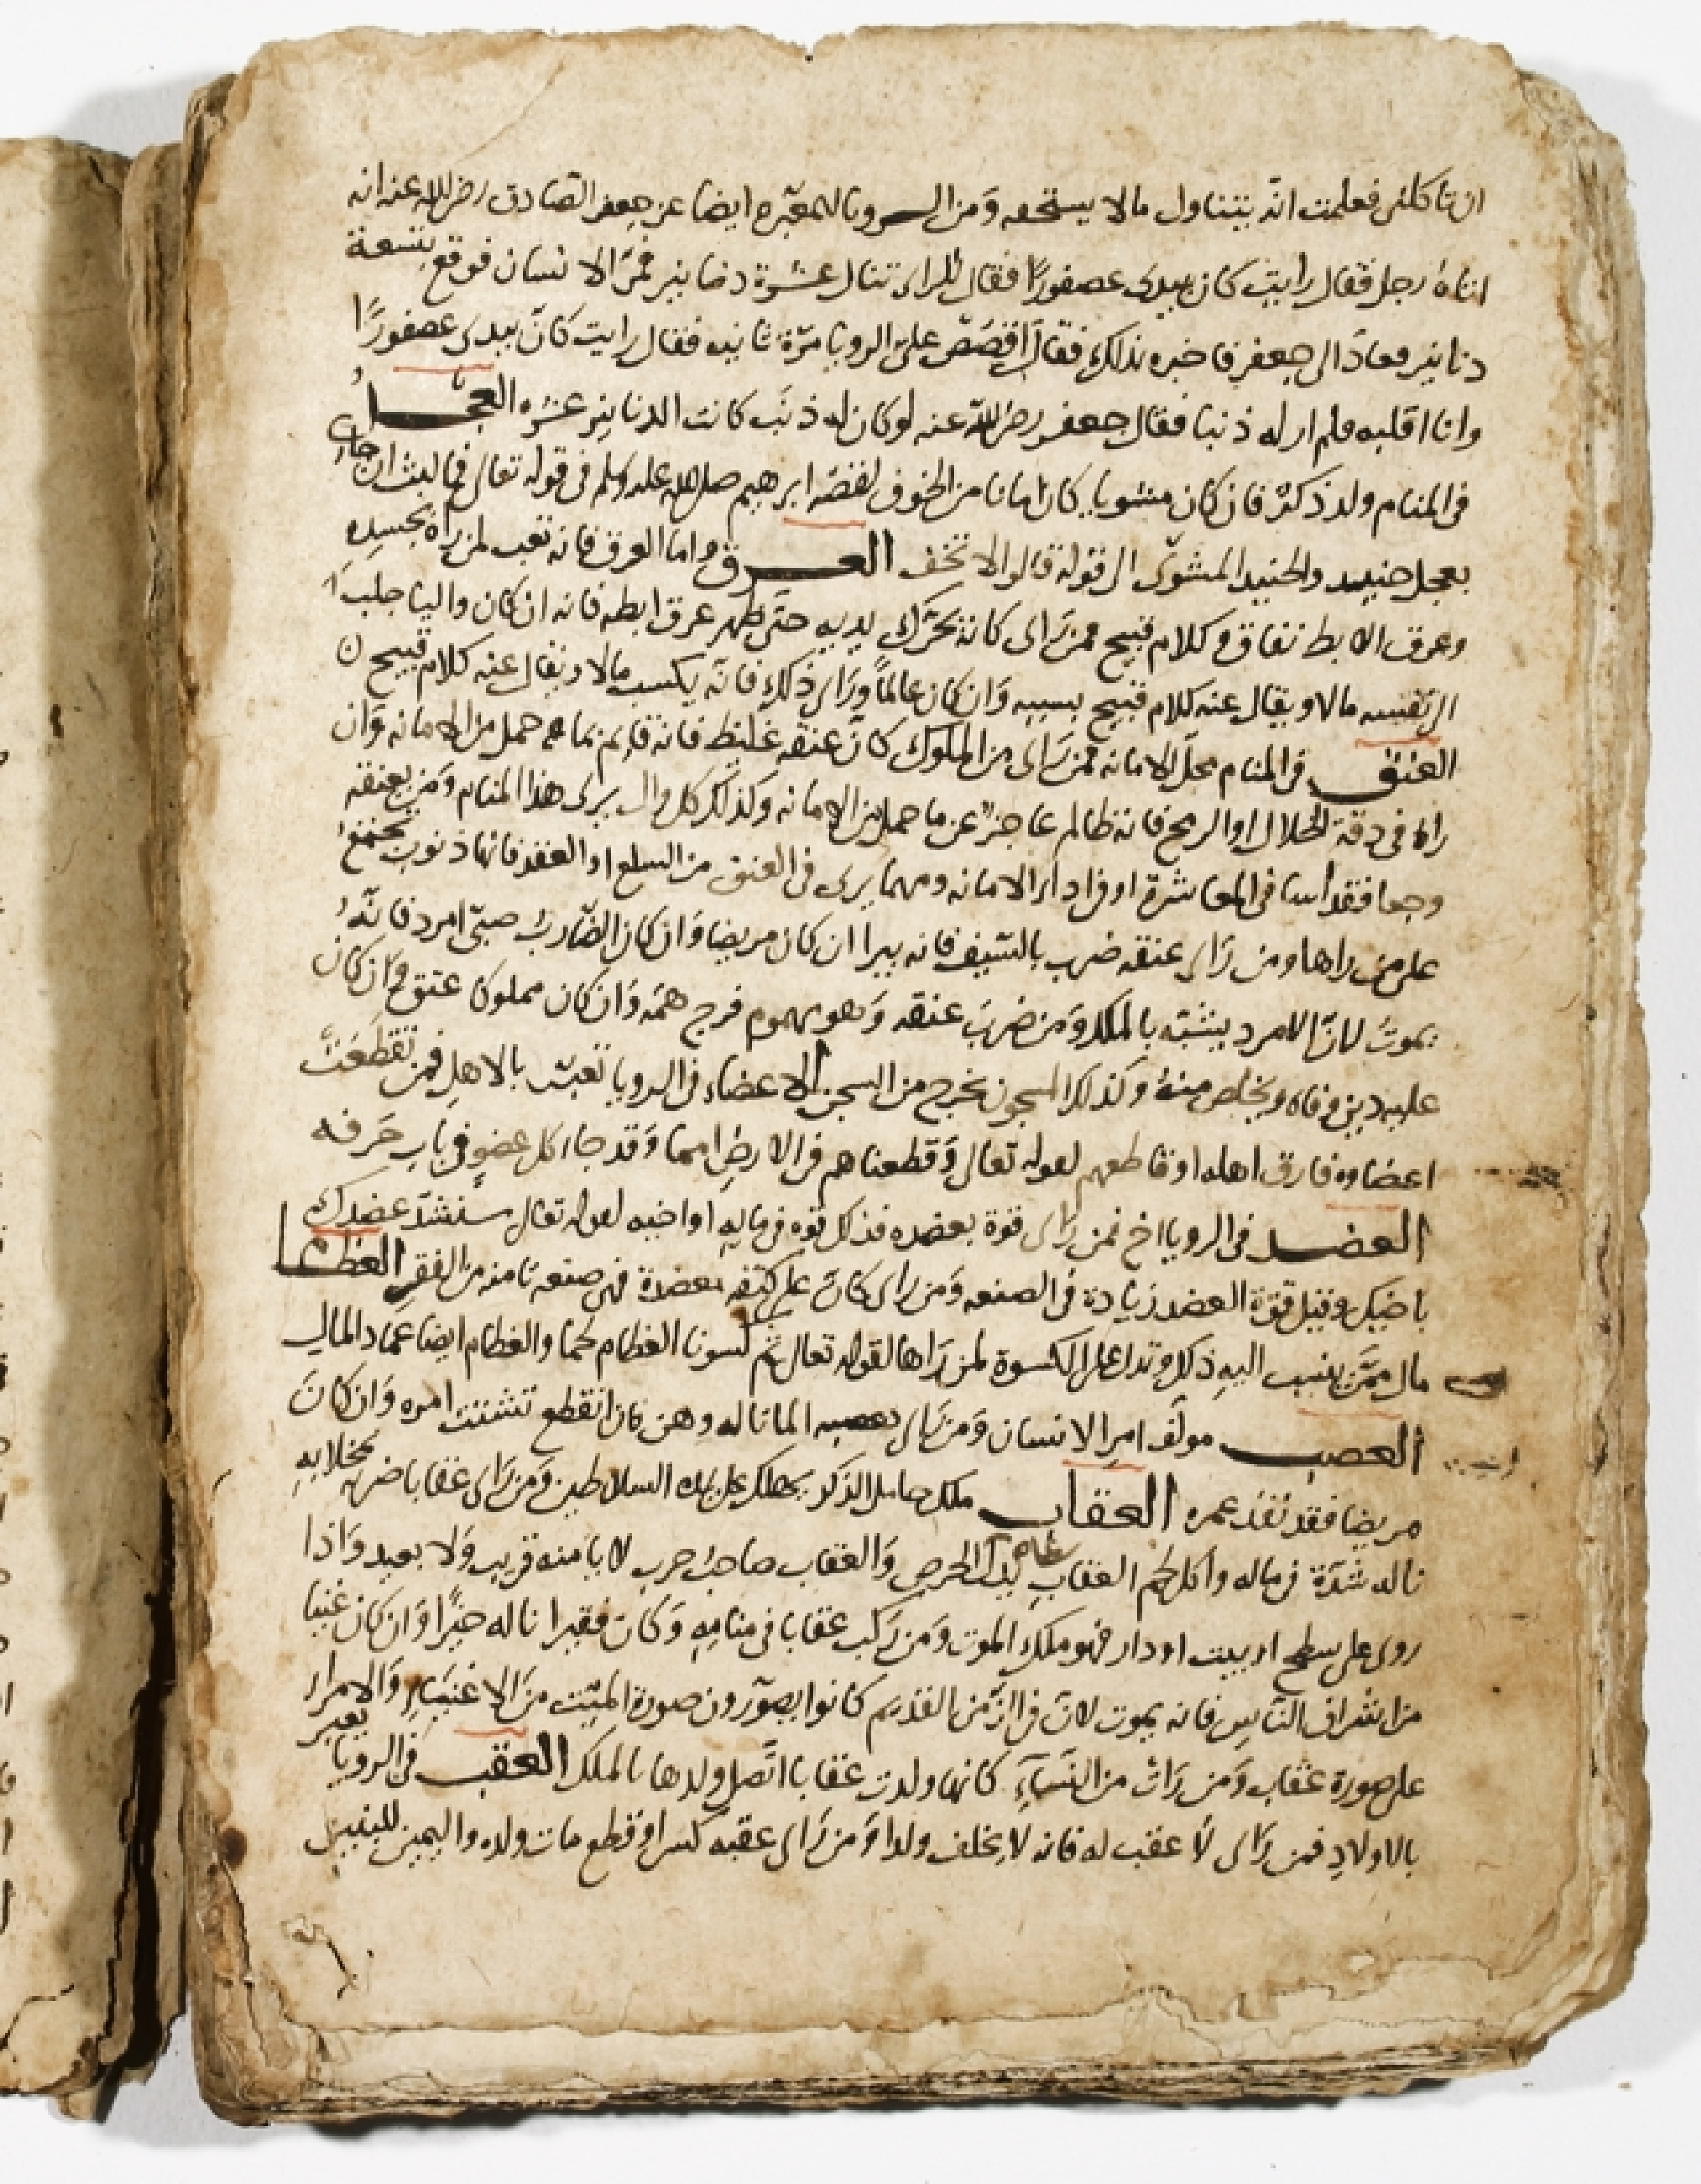 ان تاكلنى فعلمت انه يتناول مالا يستحقه وَمن الرويا المعبره ايضا عن جعفر الصادق رضى الله عنه انه
اتاهُ رجل فقال رايت كان بيدى عصفورًا فقال للراى تنال عشرة دنانير فمرّ الانسان فوقع بتسعة
دنانير فعادَ الى جعفر فاخبره بذلك فقال اقصُصْ علىّ الرويا مرّة ثانيه فقال رايت كانّ بيدى عصفورًا
وانا اقلبه فلم ار له ذنبا فقال جعفر رضى الله عنه لو كان له ذنَب كانت الدنانير عشره العجل
فى المنام ولد ذكر فان كان مشويا كان امانا من الخوف لقصّه ابرهيم صلى الله عليه وسلم فى قوله تعالى فما لبث ان جاء
بعجل حنيد والحنيد المشوّى الى قوله قالوا لا تخف العرق واما العرق فانه تعب لمن راه بجسده
وعرق الابط نفاق وكلام قبيح فمن رَاى كانه تحرّك يديه حتى ظهر عرق ابطه فانه ان كان واليا جلبَ
الى نفسه مالا ويقال عنه كلام قبيح بسببه وَان كان عالماً ورَاى ذلك فانّه يكسب مالا ويقال عنه كلام قبيح
العنق فى المنام محل الامانه فمن رَاى من الملوك كانّ عنقه غليظ فانه قايم بما حمل من الامانه وَان
راه فى دقة الخلال او الريح فانه ظالم عاجز عن ما حمل من الامانه وَكذلك كل وال يرى هذا المنام وَمن بعنقه
وجعا فقد اسا فى المعاشرة او فى اداء الامانه ومهما يرى فى العنق من السلع او العقد فانها ذنوب تجتمع
على من راها ومن رَاى عنقه ضرب بالسّيف فانه يبرا ان كان مريضا وَان كان الضّارب صبىّ امرد فانّهُ
يموتُ لانّ الامرد يتشبّه بالملك وَمن ضرِبَ عنقه وَهو مهموم فرج همّه وَان كان مملوكا عتق وَان كان
عليه دين وفاه ويخلص منهُ وكذلك المسجون يخرج من السجن الاعضاء فى الرويا تعبّر بالاهل فمن تقطّعت
اعضاوه فارق اهله او قاطعهم لقوله تعالى وَقطعناهم فى الارضِ امما وَقد جا كل عضوٍ فى باب حَرفه
العضد فى الرويا اخ فمن رَاى قوة بعضده فذلك قوه فى ماله او اخيه لقوله تعالى سنشدّ عضدك
باخيك وقيل قوّة العضد زيادة فى الصنعه وَمن رَاى كانّ على كتفه معضدة فهى صنعه تامنه من الفقر العظم
مال ممّن ينسب اليه ذلك وتدل على الكسوة لمن رَاها لقوله تعالى ثم كسونا العظام لحما والعظام ايضا عماد المال
العصب مولّف امر الانسان وَمن رَاى بعصبه الما ناله وهن فان انقطع تشتت امره وَان كانَ
مريضا فقد نفد عمره العقاب ملك حامل الذكر على يده السلاطين وَمن رَاى عقابا ضربه بمخلابه
ناله شدّة فى ماله واكل لحم العقاب الحرص وَالعقاب صاحب حرب لا يامنه قريب وَلا بعيد وَاذا
روى على سطح او بيت او دار فهو ملك الموت وَمن رَكب عقابا فى منامه وَكان فقيرا ناله خيرًا وَان كان غنيا
من اشراف النّاس فانه يموت لانّ فى الزّمن القديم كانوا يصوّرون صورة الميّت من الاغنيَاءِ وَالامراء
على صورة عقاب وَمن رَات من النّسَاءِ كانها ولدت عقابا اتّصل ولدها بالملك العقب فى الرويا يعبر
بالاولاد فمن رَاى لا عقب له فانه لا يخلف ولدا وَمن رَاى عقبه كسر او قطع مات ولده واليمين للبنين